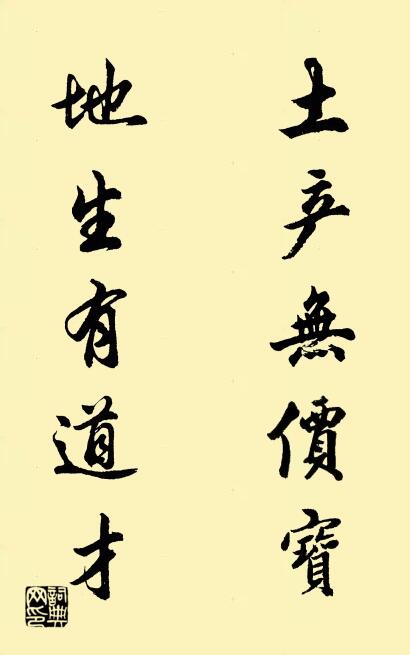 土产無價寶
地生有道才
詞典网印